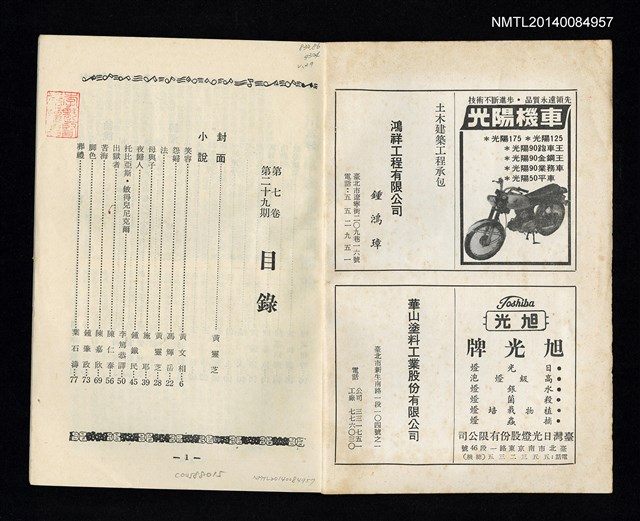 NMTL20140084957
技術不斷進步・品質永遠領先
光陽機車
＊光陽175 ＊光陽125
＊光陽90跑車王
＊光陽90金鋼王
＊光陽90業務車
＊光陽50平車
土木建築工程承包
鴻祥工程有限公司
鍾鴻璋
臺北市遼寧街二〇九巷一六號
電話：五五二九五一
Toshiba
旭光
旭光牌
日光燈
高級燈泡
水銀燈
殺菌燈
植物栽培燈
捕蟲燈
臺灣日光燈股份有限公司
臺北市南京東路一段46號
華山塗料工業股份有限公司
臺北市新生南路一段一〇四號之一
電話 公司 三三一七五一
工廠 七七六〇三〇
第七卷
第二十九期
目錄
封面 黃靈芝
小說
笑容 黃文相 6
怨婦 馮輝岳 22
法 黃靈芝 28
母與子 施耶 39
夜歸人 鍾鐵民 45
托比亞斯・敏得兒尼克爾 李篤恭譯 50
出獄者 陳仁泰 56
苦海 陳嘉欣 69
脚色 鍾肇政 73
葬禮 葉石濤 77
— 1 —
C00588015
NMTL20140084957